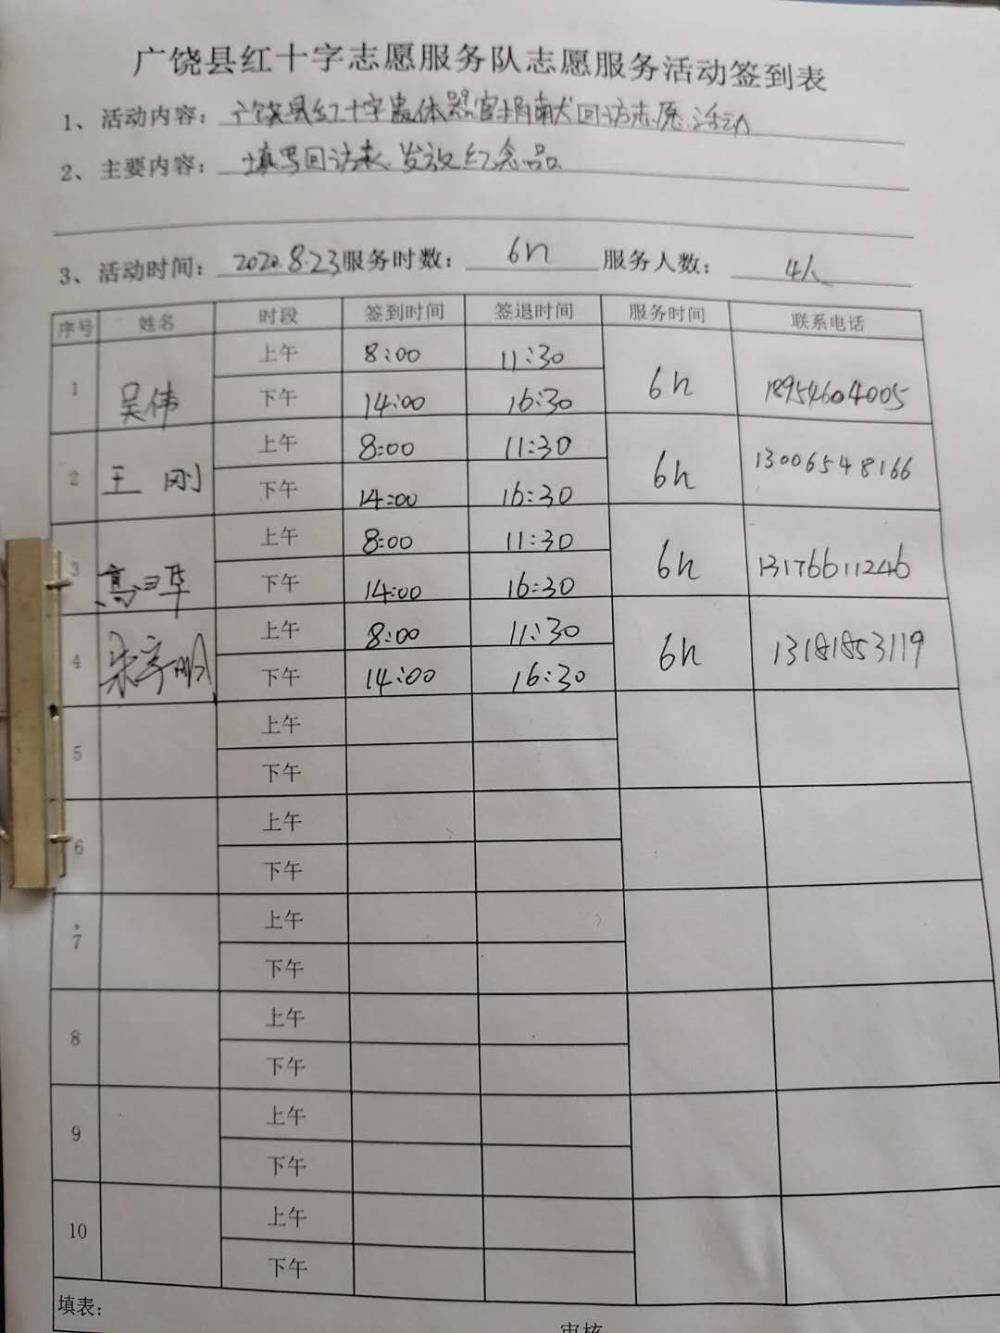 广饶县红十字志愿服务队志愿服务活动签到表
1、活动内容：广饶县红十字遗体器官捐献回访志愿活动
2、主要内容：填写回访表、发放纪念品
3、活动时间：2020.8.23 服务时数：6h 服务人数：4人
序号 姓名 时段 签到时间 签退时间 服务时间 联系电话
1 吴伟 上午 8:00 11:30 6h 18954604005
下午 14:00 16:30
2 王刚 上午 8:00 11:30 6h 13006548166
下午 14:00 16:30
3 上午 8:00 11:30 6h 13176611246
下午 14:00 16:30
4 上午 8:00 11:30 6h 13181853119
下午 14:00 16:30
5 上午
下午
6 上午
下午
7 上午
下午
8 上午
下午
9 上午
下午
10 上午
下午
填表：
审核